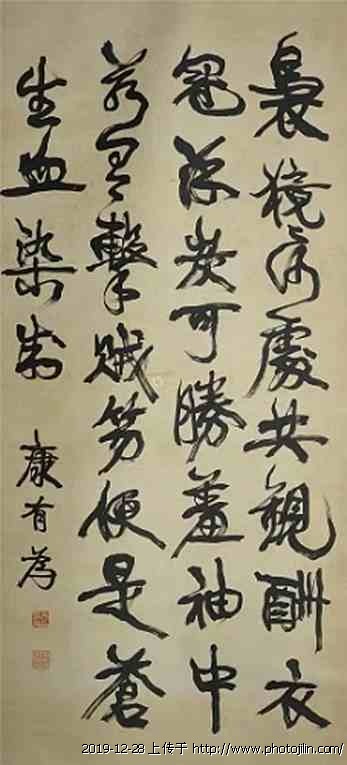 裊獍處共觀酬衣
冠塗炭可勝羞袖中
若有擊賊笏便是蒼
生血染
康有為
2019-12-28 上传于 http://www.photojilin.com/